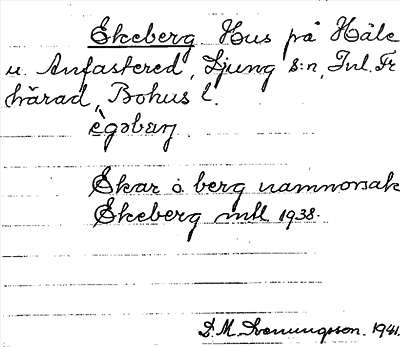 Ekeberg Hus på Håle
u. Anfastered, Ljung s:n, Inl. Fr
härad, Bohus l.
ègəbærj
Ekar o berg namnorsak
Ekeberg mtl 1938.
D. M. Svenungsson. 1941.